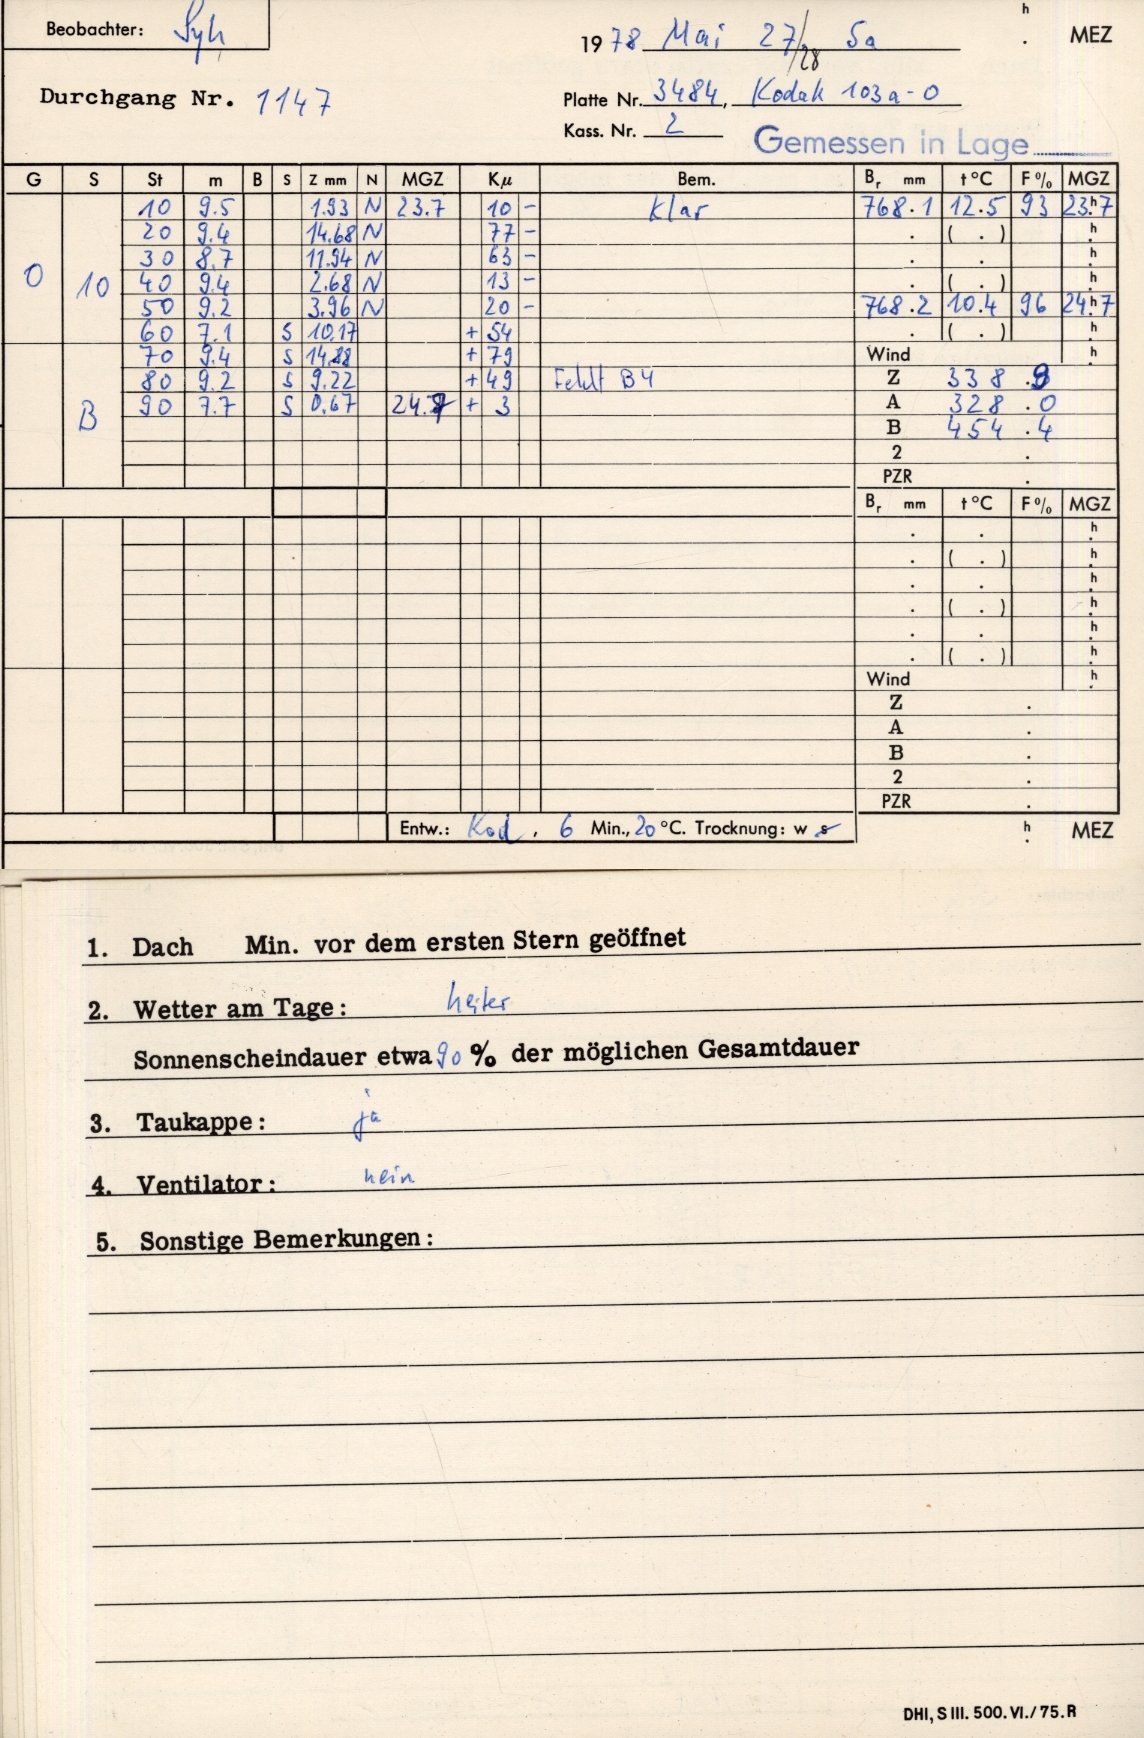 Beobachter: Syh
h
1978 Mai 27/28 Sa . MEZ
Durchgang Nr. 1147
Platte Nr. 3484, Kodak 103a-O
Kass. Nr. 2
Gemessen in Lage
G S St m B S Z mm N MGZ Kμ Bem. Br mm t°C F% MGZ
10 9.5 1.93 N 23.7 10 - Klar 768.1 12.5 93 23h.7
20 9.4 14.68 N 77 - . ( . ) h.
30 8.7 11.94 N 63 - . . h.
O 10 40 9.4 2.68 N 13 - . ( . ) h.
50 9.2 3.96 N 20 - 768.2 10.4 96 24h.7
60 7.1 S 10.17 + 54 . ( . ) h.
70 9.4 S 14.88 + 79 Wind h.
80 9.2 S 9.22 + 49 Fehlt B4 Z 338.9
B 90 7.7 S 0.67 24.7 + 3 A 328.0
B 454.4
2 .
PZR .
Br mm t°C F% MGZ
. . h.
. ( . ) h.
. . h.
. ( . ) h.
. . h.
. ( . ) h.
Wind h.
Z .
A .
B .
2 .
PZR .
Entw.: Kod. 6 Min., 20 °C. Trocknung: w s h. MEZ
1. Dach Min. vor dem ersten Stern geöffnet
2. Wetter am Tage: heiter
Sonnenscheindauer etwa 90 % der möglichen Gesamtdauer
3. Taukappe: ja
4. Ventilator: nein
5. Sonstige Bemerkungen:
DHI, S III. 500. VI./75. R